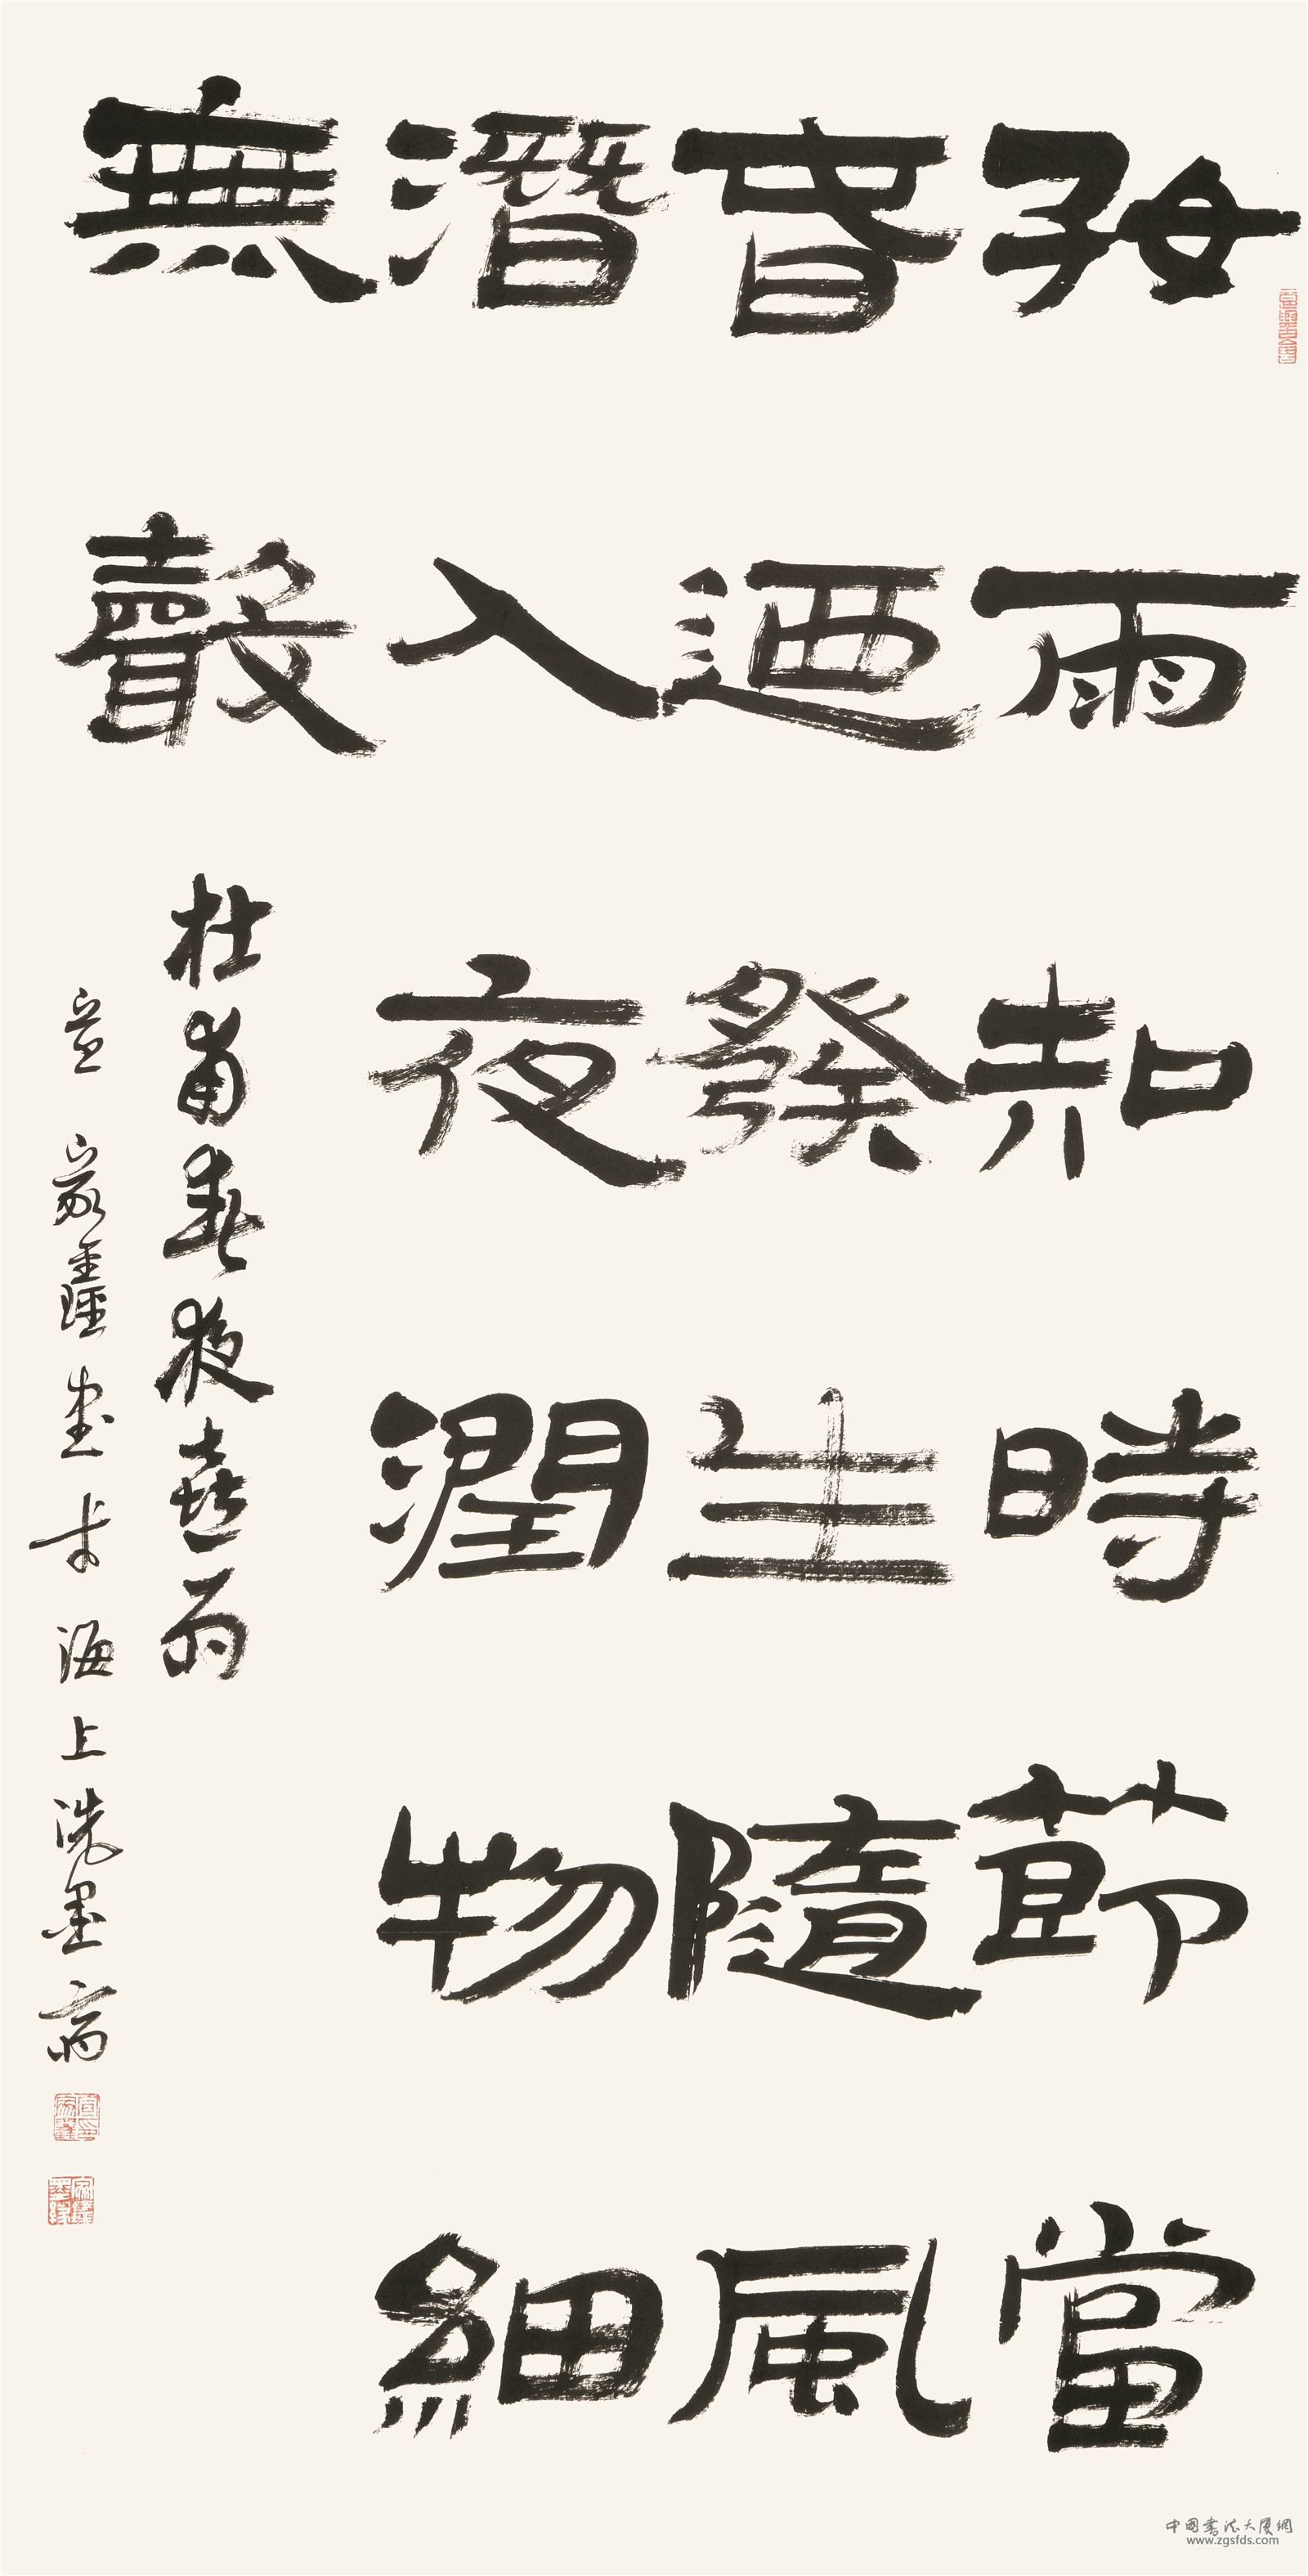 好雨知時節當
春迺發生隨風
潛入夜潤物細
無聲
杜甫春夜喜雨
宣家鑫書於海上洗墨齋
中國書法大廈網
www.zgsfds.com